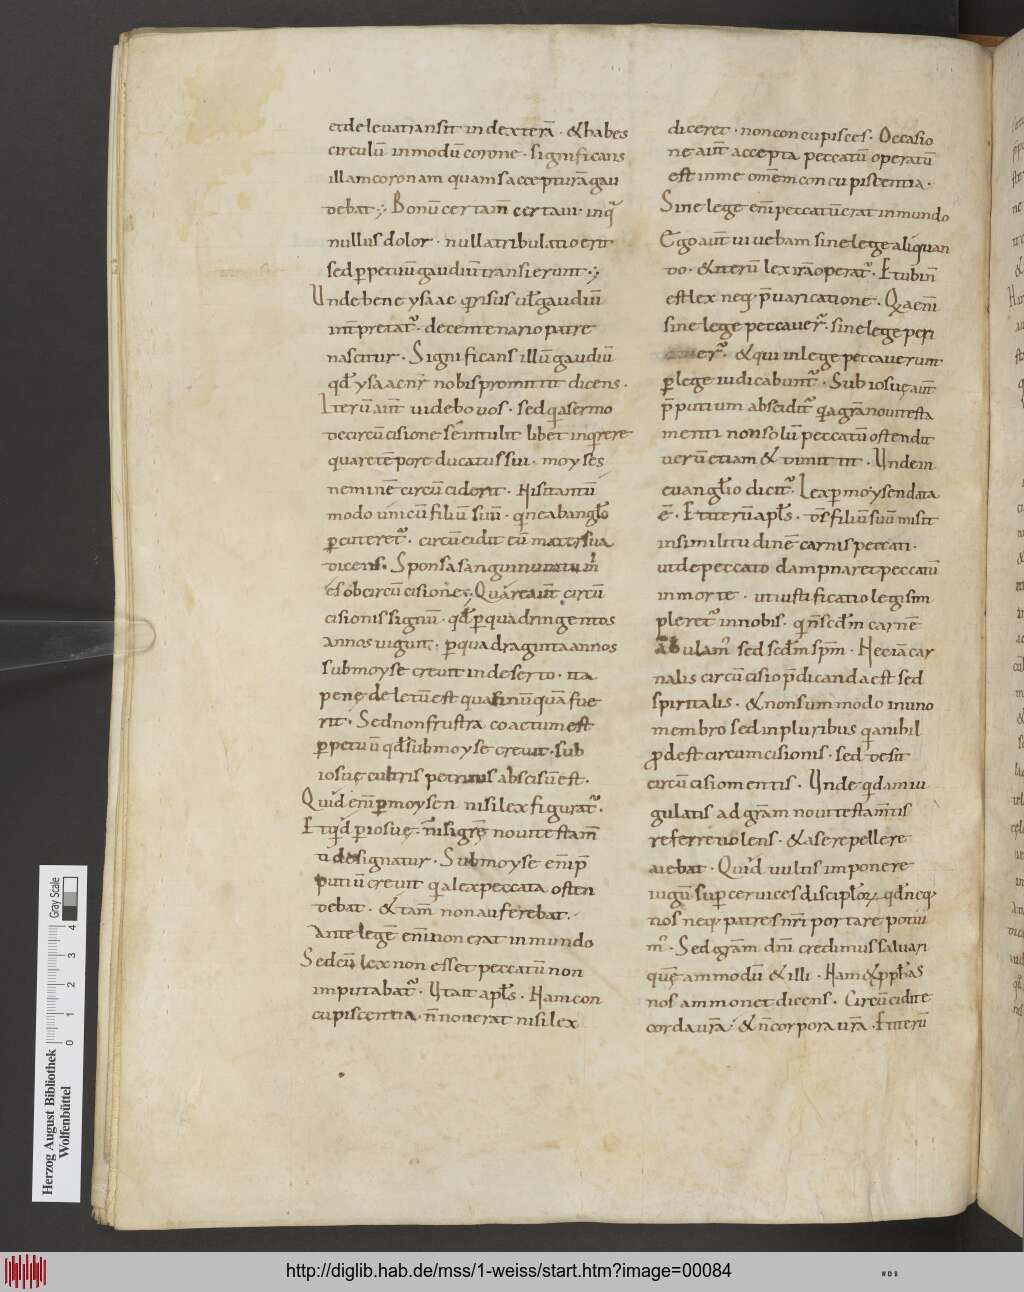 et de leua transit in dexterā · & habes
circulū in modū corone · significans
illam coronam quam se accepturā gau
debat ; Bonū certam̄ certaui · inq̇
nullus dolor · nulla tribulatio erit
sed ꝑpetuū gaudiū transierunt ;
Vnde bene ysaac q risus uł gaudiū
int̄pretat᷑ · de centenario patre
nascitur · Significans illū gaudiū
qđ ysaac nr̄ nobis promittit dicens ·
Iterū aut̄ uidebo uos · sed q̇a sermo
de circūcisione sē intulit libet inq̇rere
quare tēpore ducatus sui · moyses
neminē circūciderit · Hisi tantū
modo unicū filiū suū · q̇ ne ab angło
ꝑcuteret᷑ · circūcidit eū mater sua
dicens · Sponsa sanguinum tu m̄
es ob circūcisionē ; Quare aut̄ circū
cisionis signū · qđ ꝑ quadringentos
annos uiguit · ꝑ quadraginta annos
sub moyse creuit in deserto · ita
pene deletū est quasi nūquā fue
rit · Sed non frustra coactum est
ꝑpetuū qđ sub moyse creuit · sub
iosuę cultris petrinis abscisū est ·
Quid em̄ ꝑ moysen nisi lex figurat᷑ ·
Et q̇d ꝑ iosuę · n̄si grę̄ noui testam̄
ti designatur · Sub moyse em̄ p̄
putiū creuit q̇a lex peccata osten
debat · & tam̄ non auferebat ·
Ante legē em̄ non erat in mundo
Sed cū lex non esset peccatū non
imputabat᷑ · Vt ait apłs · Nam con
cupiscentia · n̄ noueram nisi lex
diceret · non concupisces · Occasio
ne aut̄ accepta peccatū operatū
est in me om̄em concupiscentia ·
Sine lege em̄ peccatū erat in mundo
Ego aut̄ uiuebam sine lege aliquan
do · & iterū lex irā operat᷑ · Et ubi n̄
est lex neq; p̄uaricatione · Qa em̄
sine lege peccauer᷑ · sine lege peri
er᷑ · & qui in lege peccauerunt
ꝑ lege iudicabunt᷑ · Sub iosuę aut̄
p̄putium absciditᷓ q̇a grā noui testa
menti non solū peccatū ostendit
uerū etiam & dimittit · Vnde in
euangłio dicit᷑ · Lex ꝑ moysen data
ē · Et iterū apłs · d̄s filiū suū misit
in similitudinē carnis peccati ·
ut de peccato dampnaret peccatū
in morte · ut iustificatio legis im
pleret᷑ in nobis · q̇ n̄ scđm carnē
ambulam᷒ sed scđm sp̄m · Hec iā car
nalis circūcisio p̄dicanda est sed
spiritalis · & non sum modo in uno
membro sed in pluribus q̇a nihil
ꝓdest circumcisionis · sed desit
circūcisio mentis · Vnde q̇dam iu
gulatis ad grām noui testam̄tis
referre uolens · & a se repellere
aiebat · Quid uultis imponere
iugū suꝑ ceruices discipłoꝝ qđ neq;
nos neq; patres nr̄i portare potui
m᷒ · Sed grām dn̄i credimus saluari
quę̄ammodū & illi · Nam & ꝓph̄as
nos ammonet dicens · Circūcidite
corda ur̄a · & n̄ corpora ur̄a · Et iterū
Herzog August Bibliothek
Wolfenbüttel
0 1 2 3 4
Gray Scale
http://diglib.hab.de/mss/1-weiss/start.htm?image=00084